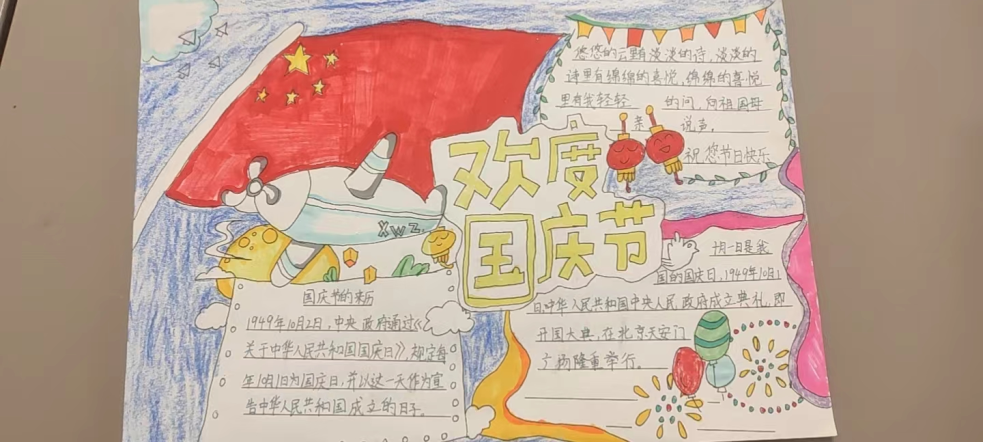 悠悠的云里有淡淡的诗,淡淡的
诗里有绵绵的喜悦,绵绵的喜悦
里有我轻轻 的问,向祖国母
亲 说声,
祝您节日快乐
欢度
国庆节
XWZ
国庆节的来历
1949年10月2日,中央政府通过《
关于中华人民共和国国庆日》,规定每
年10月1日为国庆日,并以这一天作为宣
告中华人民共和国成立的日子。
十月一日是我
国的国庆日,1949年10月1
日,中华人民共和国中央人民政府成立典礼,即
开国大典,在北京天安门
广场隆重举行。